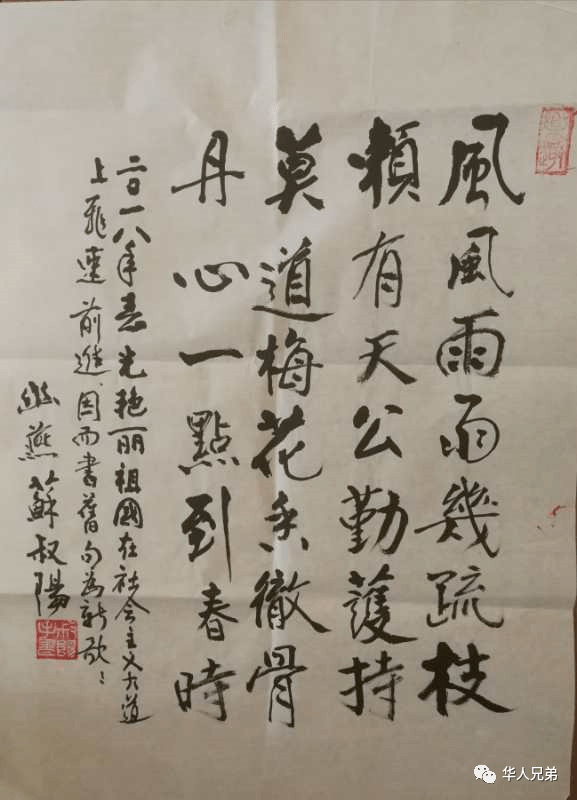 風風雨雨幾疏枝
賴有天公勤護持
莫道梅花香徹骨
丹心一點到春時
二〇一八年春光艳丽祖國在社会主义大道
上飛速前進因而書舊句為新歌
幽燕蘇叔陽
华人兄弟